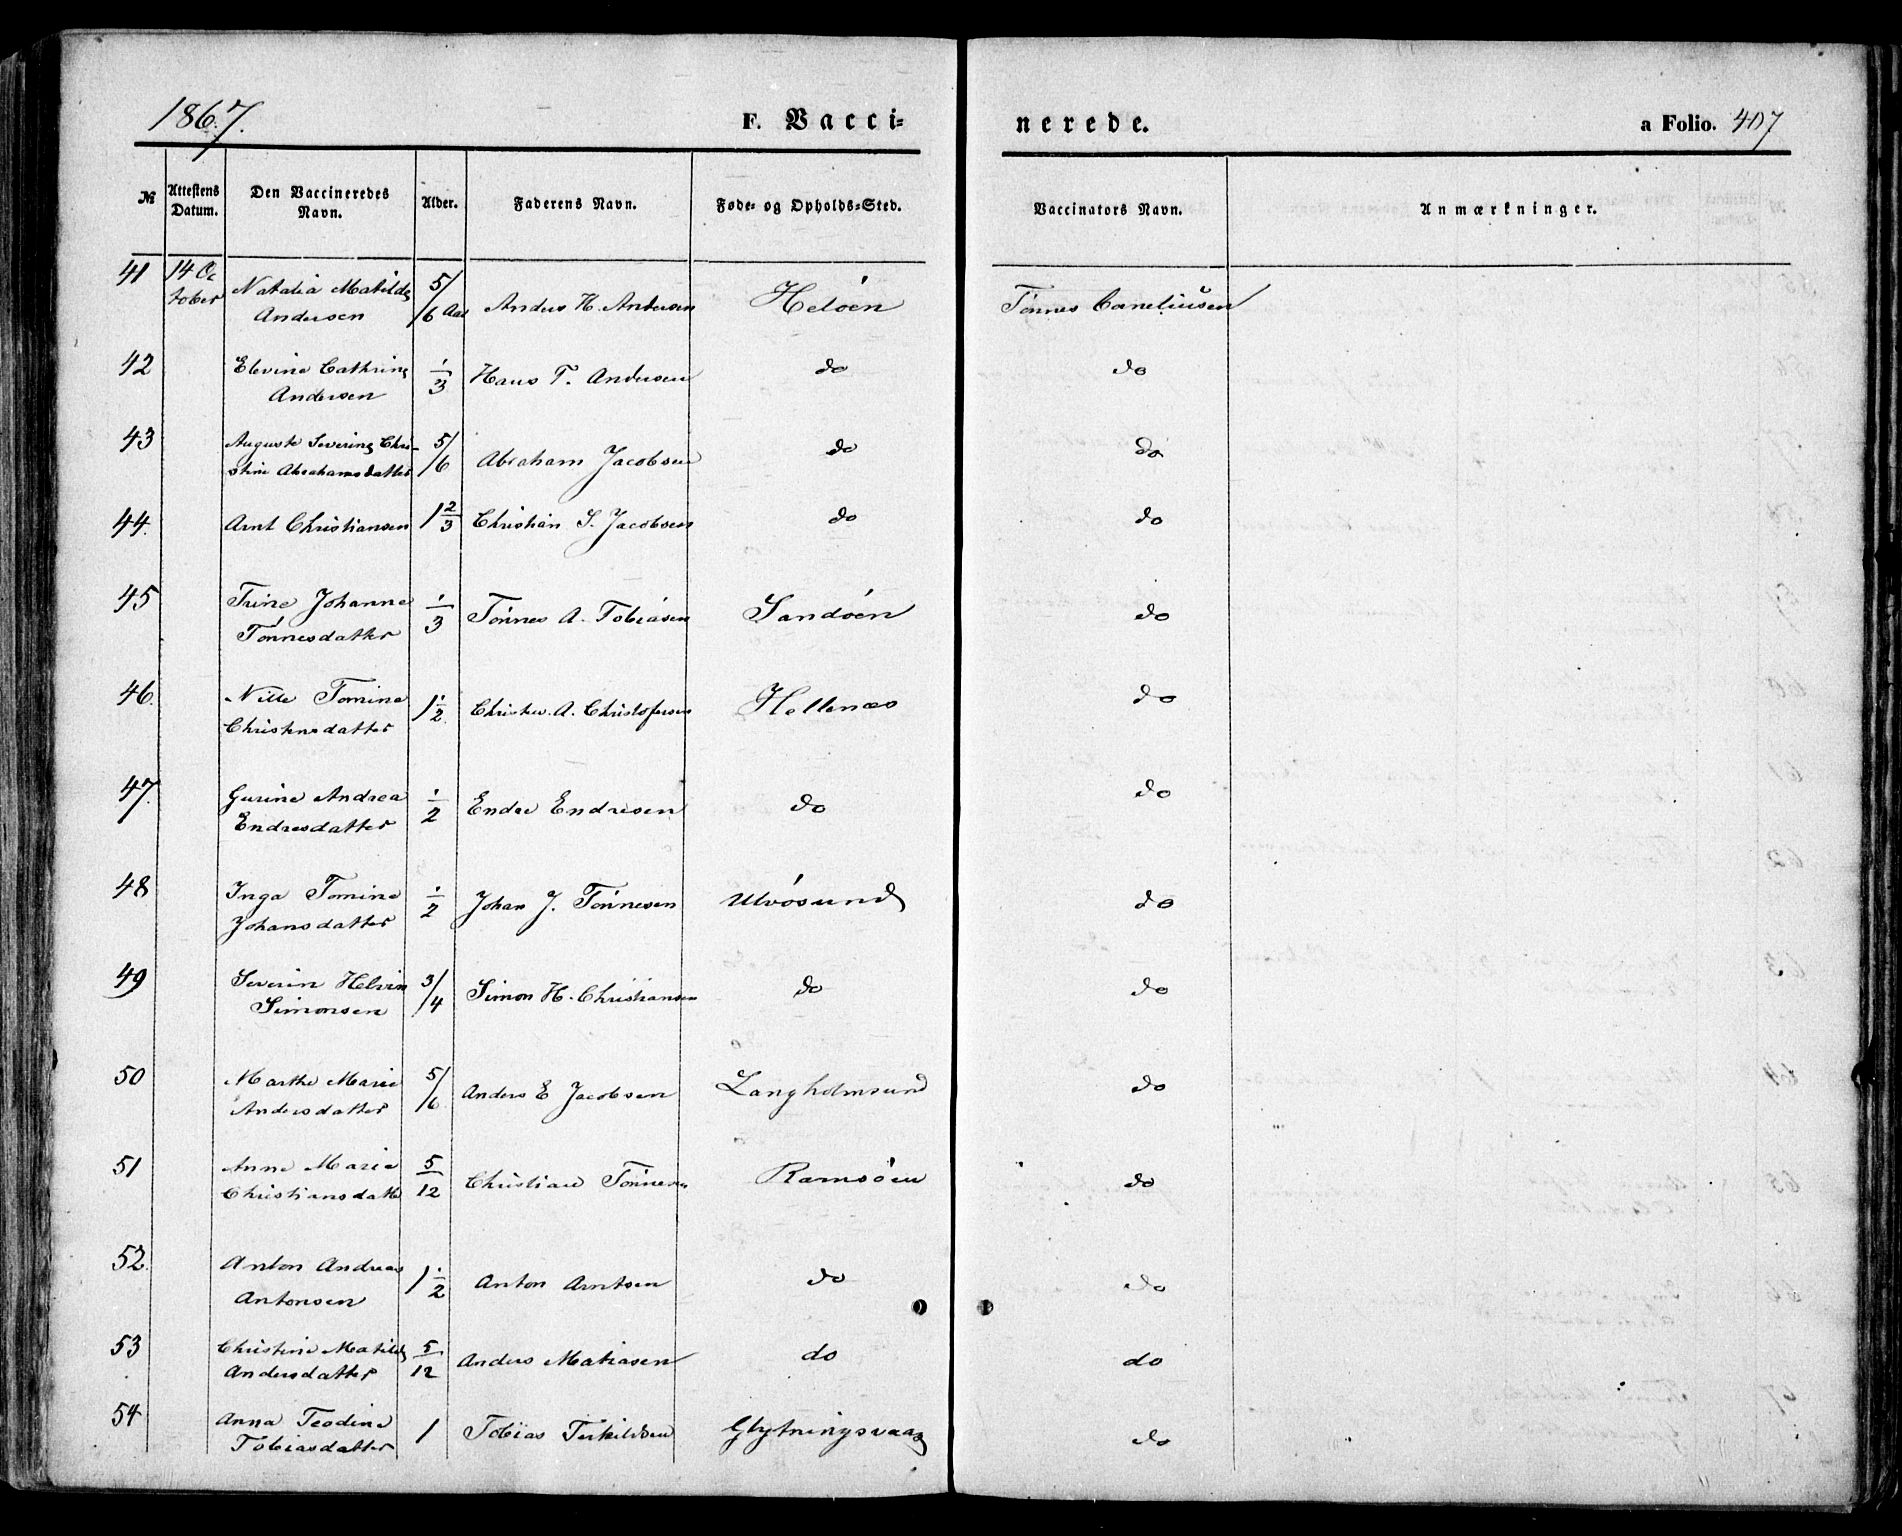 1867.
F. Vacci-
nerede.
a Folio. 407
№
Attestens Datum.
Den Vaccineredes Navn.
Alder.
Faderens Navn.
Føde- og Opholds-Sted.
Vaccinators Navn.
Anmærkninger.
41 14 Oc Natalia Matilde 5/6 Aar Anders H. Andersen Heløen Tønnes Corneliusen
tober Andersen
42 Elevine Cathrine 1/3 Hans T. Andersen do do
Andersen
43 Auguste Severine Chri- 5/6 Abraham Jacobsen do do
stine Abrahamsdatter
44. Arnt Christiansen 1 2/3 Christian S. Jacobsen do do
45 Trine Johanne 1/3 Tønnes A. Tobiasen Sandøen do
Tønnesdatter
46. Nille Tomine 1 1/2 Christen A. Christofersen Hellenæs do
Christensdatter
47. Gurine Andrea 1/2 Endre Endresen do do
Endresdatter
48 Inga Tomine 1/2 Johan J. Tønnesen Ulvøsund do
Johansdatter
49 Severin Helvin 3/4 Simon H. Christiansen do do
Simonsen
50 Marthe Marie 5/6 Anders E Jacobsen Langholmsund do
Andersdatter
51 Anne Marie 5/12 Christian Tønnesen Ramsøen do
Christiansdatter
52. Anton Andreas 1 1/2 Anton Arntsen do do
Antonsen
53 Christine Matilde 5/12 Anders Matiasen do do
Andersdatter
54 Anna Teodine 1 Tobias Terkildsen Glytningsvaag do
Tobiasdatter